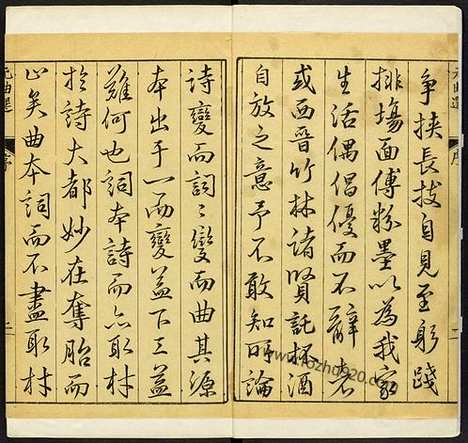 爭挾長技自見至躬踐
排場面傅粉墨以為我家
生活偶倡優而不辭者
或西晉竹林諸賢託杯酒
自放之意予不敢知所論
詩變而詞詞變而曲其源
本出于一而變益下工益
難何也詞本詩而亦取材
於詩大都妙在奪胎而
止矣曲本詞而不盡取材
元曲選
序
二
元曲選
序
二